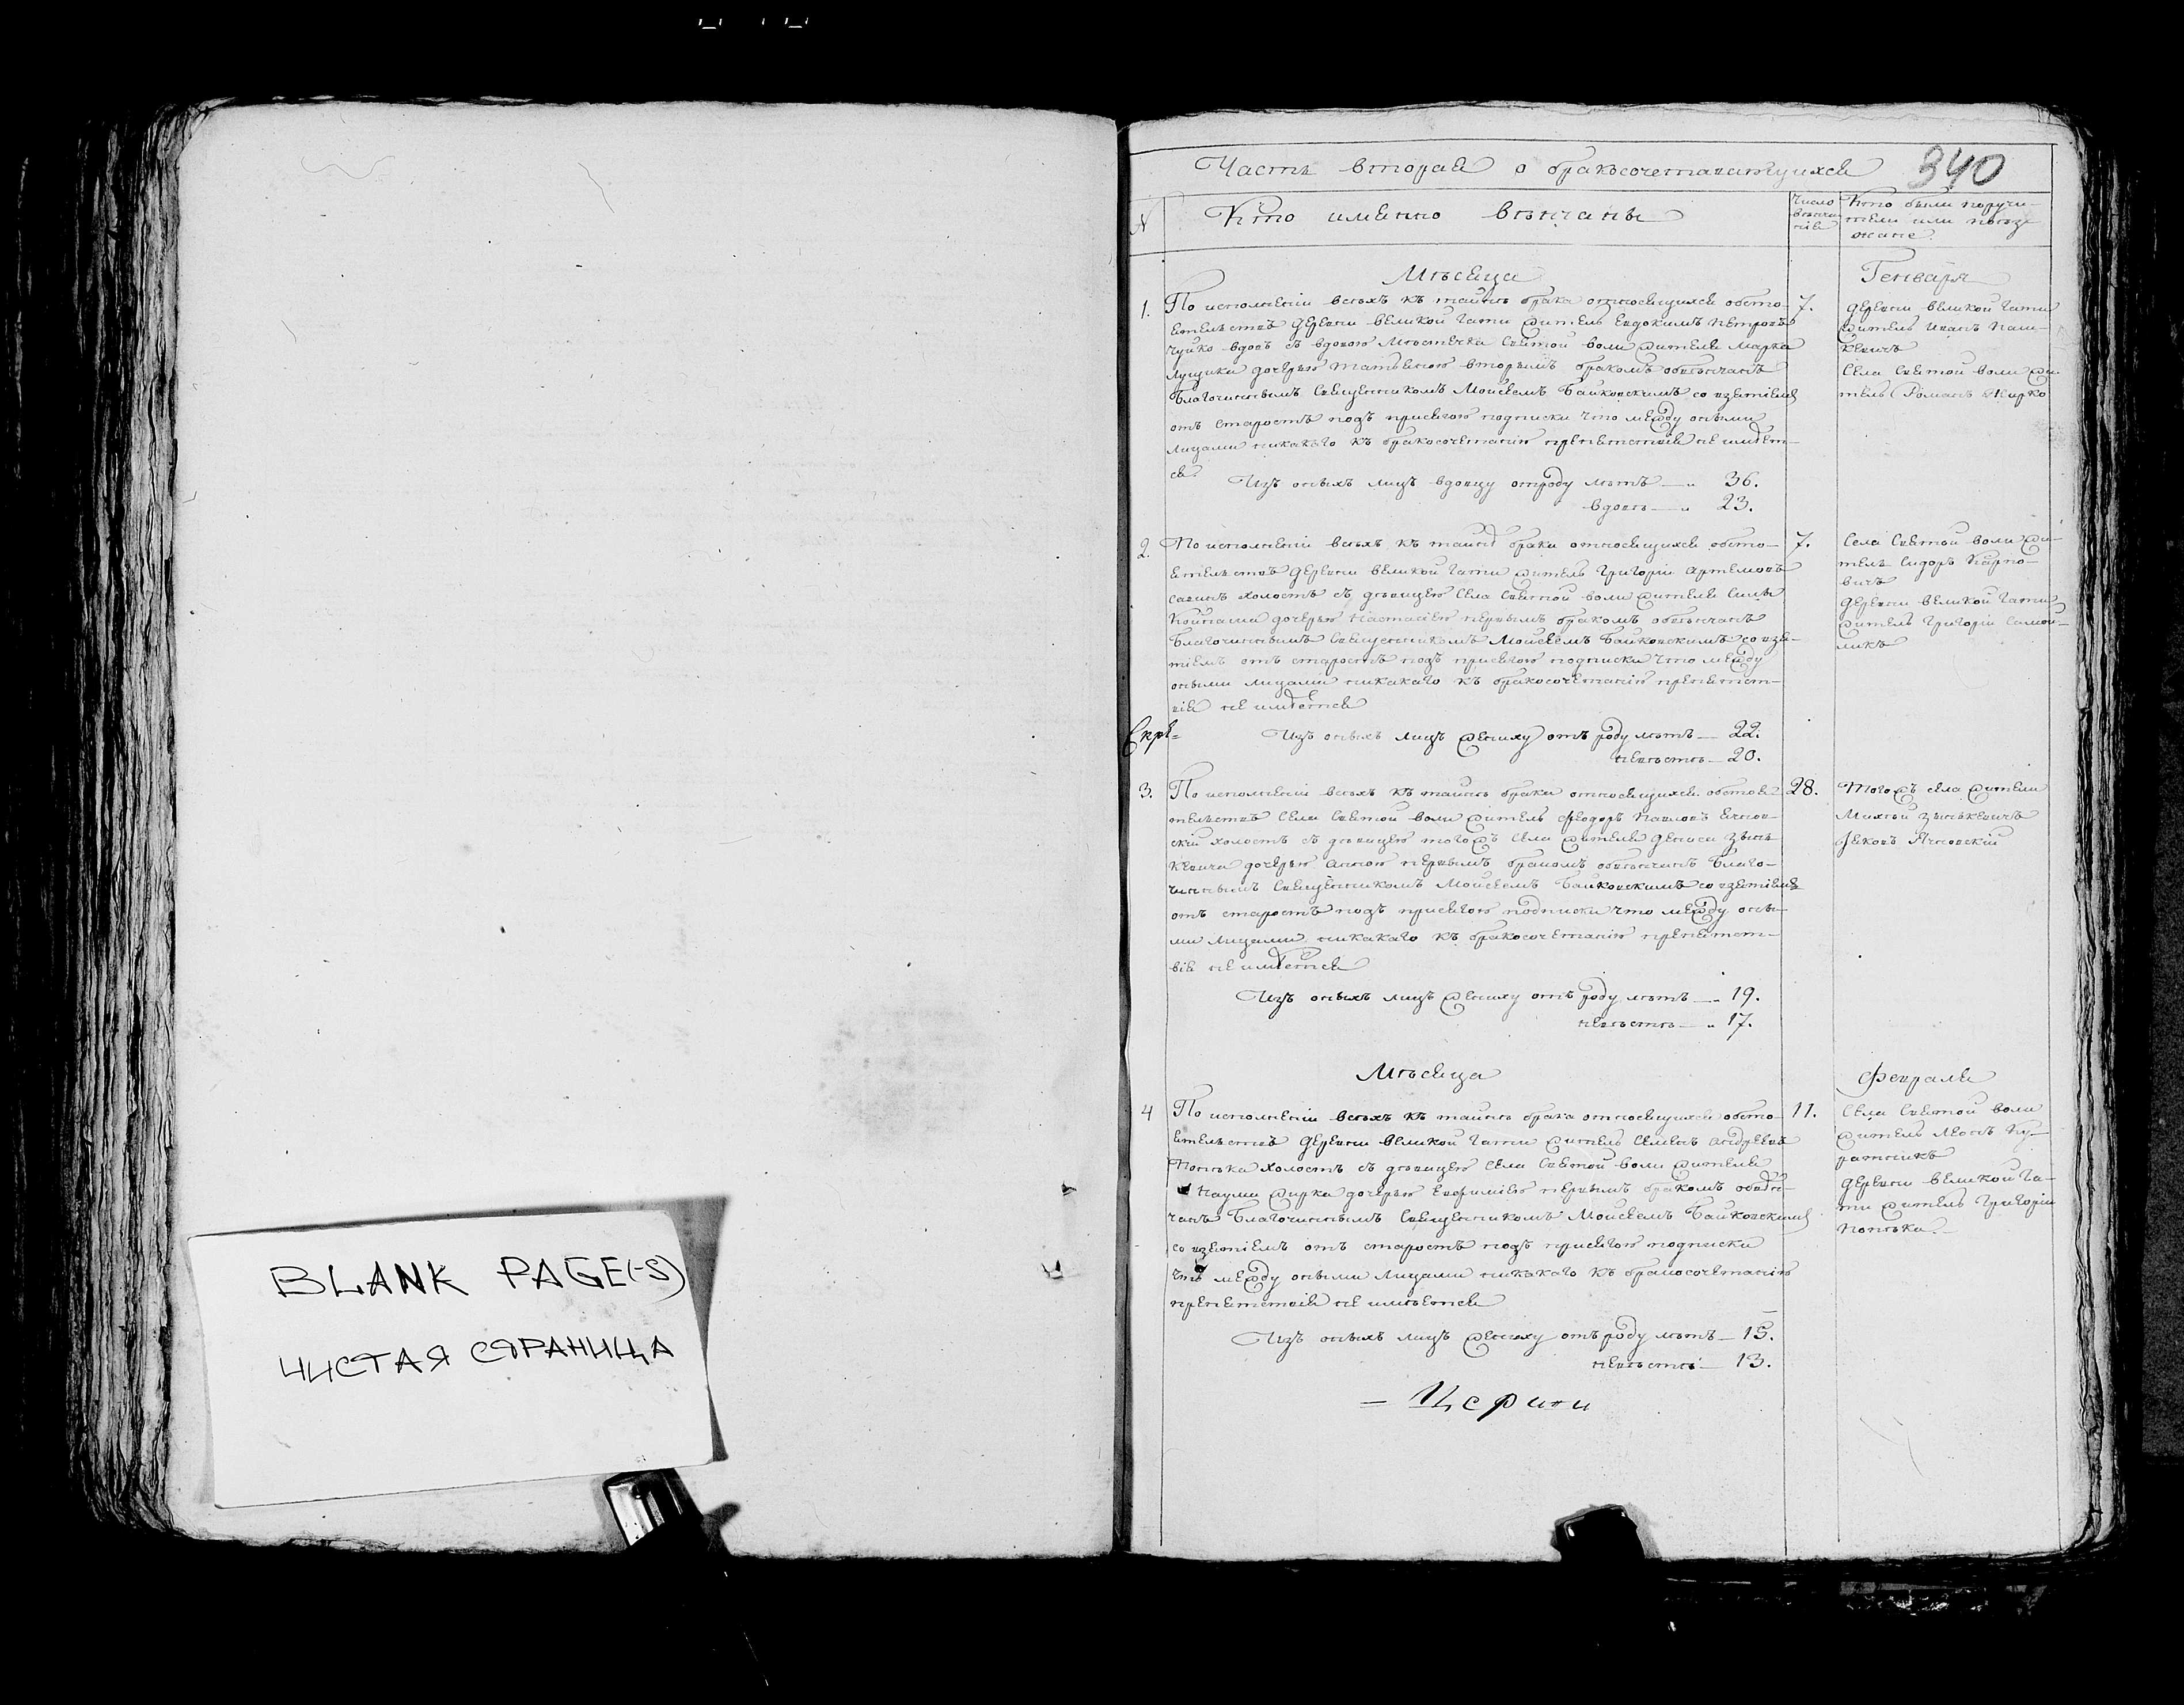 BLANK PAGE(-S)
ЧИСТАЯ СТРАНИЦА
Часть вторая о бракосочетавающихся
340
№
Кто именно вѣнчаны
Число вѣнча-
нія
Кто были поручи-
тели или поѣз-
жане.
Мѣсяца
Генваря
1.
По исполненіи всѣхъ къ тайнѣ брака относящихся обсто-
ятельствъ деревни Великой Гати житель Евдокимъ Петровъ
Чуйко вдовъ съ вдовою Мѣстечка Святой Воли жителя Марка
Лущика дочерью Татьяною вторымъ бракомъ обвѣнчанъ
Благочиннымъ Священникомъ Мойсеемъ Байковскимъ со взятіемъ
отъ старостъ подъ присягою подписки что между оными
лицами никакаго къ бракосочетанію препятствія не имѣет-
ся.
Изъ оныхъ лицъ вдовцу отроду лѣтъ — 36.
вдовѣ — 23.
7.
деревни Великой Гати
житель Иванъ Пали-
кевичъ
Села Святой Воли жи-
тель Романъ Жирко
2.
По исполненіи всѣхъ къ тайнѣ брака относящихся обсто-
ятельствъ деревни Великой Гати житель Григорій Артемовъ
Савинъ холостъ съ дѣвицею Села Святой Воли жителя Силы
дочерью Настасіею первымъ бракомъ обвѣнчанъ
Благочиннымъ Священникомъ Мойсеемъ Байковскимъ со взя-
тіемъ отъ старостъ подъ присягою подписки что между
оными лицами никакаго къ бракосочетанію препятст-
вія не имѣется
Изъ оныхъ лицъ жениху отъ роду лѣтъ — 22.
невѣстѣ — 20.
7.
Села Святой Воли жи-
тель Сидоръ Карпо-
вичъ
деревни Великой Гати
житель Григорій Самой-
ликъ
Скрѣ=
3.
По исполненіи всѣхъ къ тайнѣ брака относящихся обстоя-
тельствъ Села Святой Воли житель Федоръ Павловъ Яснов-
скій холостъ съ дѣвицею тогожъ Села жителя Дениса Зѣнь-
кевича дочерью Анною первымъ бракомъ обвѣнчанъ Благо-
чиннымъ Священникомъ Мойсеемъ Байковскимъ со взятіемъ
отъ старостъ подъ присягою подписки что между оны-
ми лицами никакаго къ бракосочетанію препятст-
вія не имѣется
Изъ оныхъ лицъ жениху отъ роду лѣтъ — 19.
невѣстѣ — 17.
28.
Тогожъ села жители
Михей Зѣнькевичъ
Яковъ Ясновскій
Мѣсяца
Февраля
4
По исполненіи всѣхъ къ тайнѣ брака относящихся обсто-
ятельствъ деревни Великой Гати житель Семенъ Андреевъ
Попѣка холостъ съ дѣвицею Села Святой Воли жителя
Наума Жирка дочерью Евфиміею первымъ бракомъ обвѣн-
чанъ Благочиннымъ Священникомъ Мойсеемъ Байковскимъ
со взятіемъ отъ старостъ подъ присягою подписки
что между оными лицами никакаго къ бракосочетанію
препятствія не имѣется
Изъ оныхъ лицъ жениху отъ роду лѣтъ — 15.
невѣстѣ — 13.
11.
Села Святой Воли
житель Леонъ Ку-
ратникъ
деревни Великой Га-
ти житель Григорій
Попѣка.